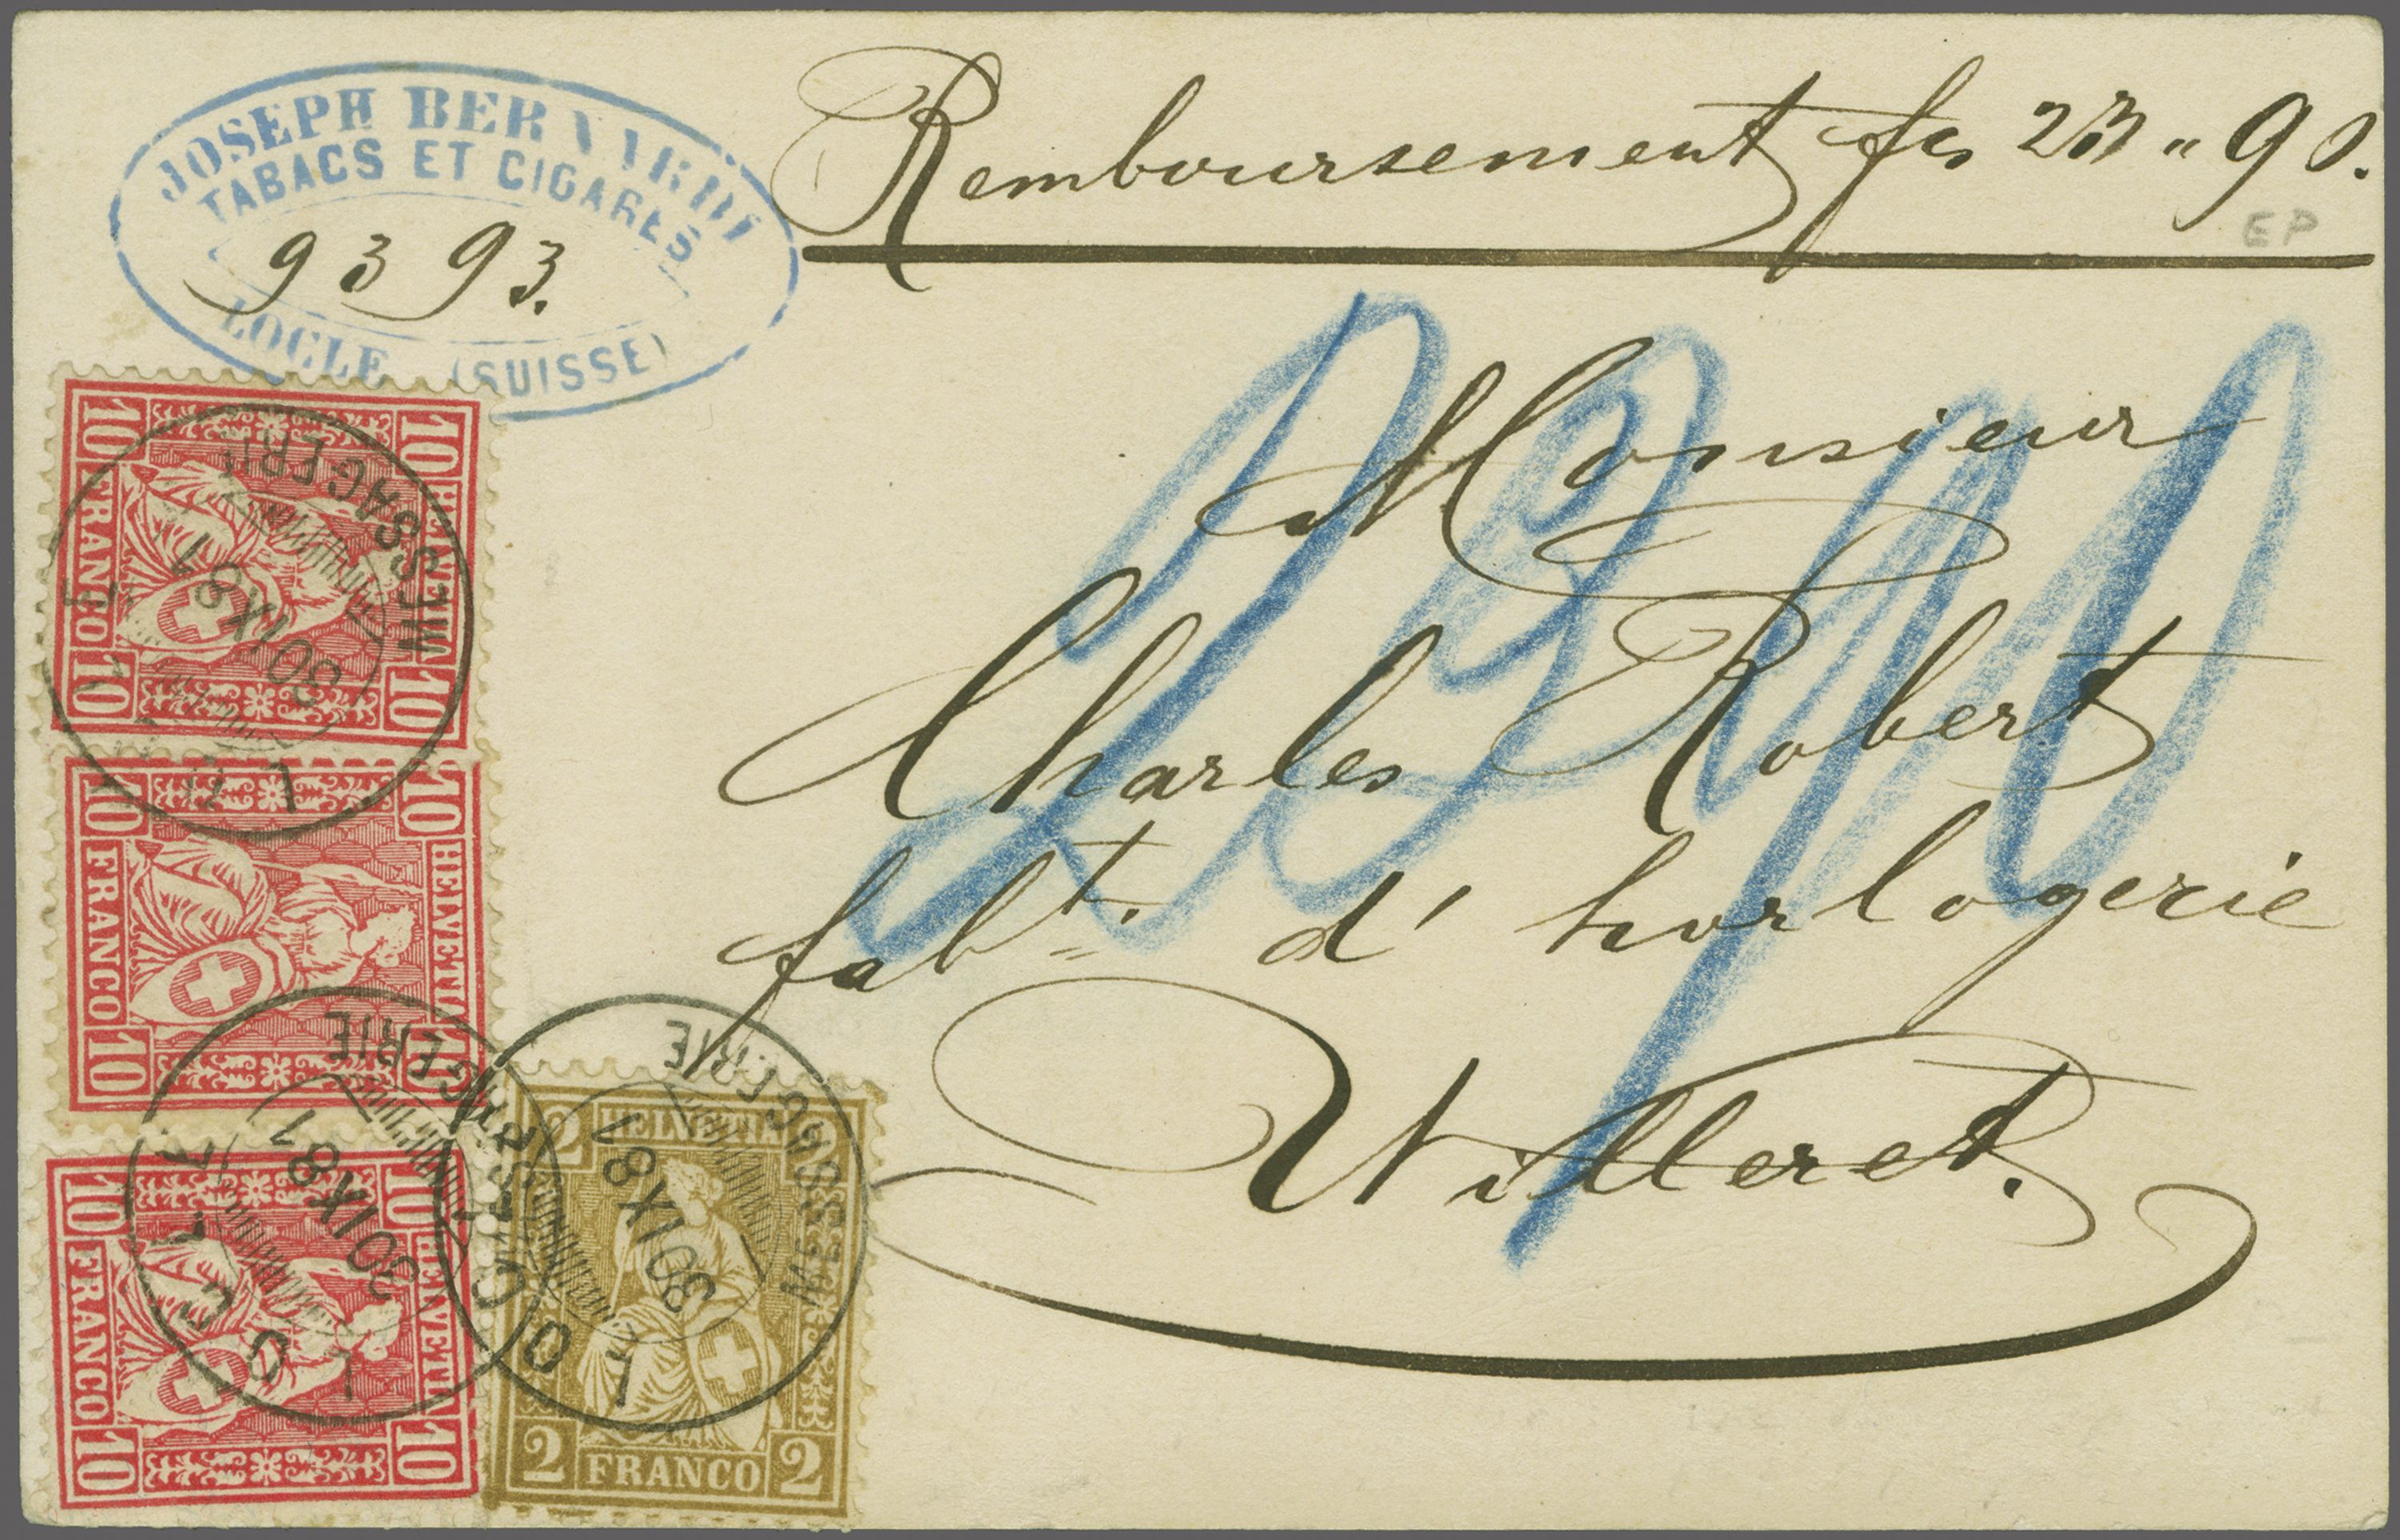 JOSEPH BERNARDI
TABACS ET CIGARES
9393.
LOCLE (SUISSE)
Remboursement fcs 23 " 90.
EP
23 90
Monsieur
Charles Robert
fabt. d'horlogerie
Villeret.
10 HELVETIA 10
10 FRANCO 10
MESSAGERIE
30 IX 81
LOCLE
10 HELVETIA 10
10 FRANCO 10
10 HELVETIA 10
10 FRANCO 10
MESSAGERIE
30 IX 81
LOCLE
2 HELVETIA
2 FRANCO 2
MESSAGERIE
30 IX 81
LOCLE